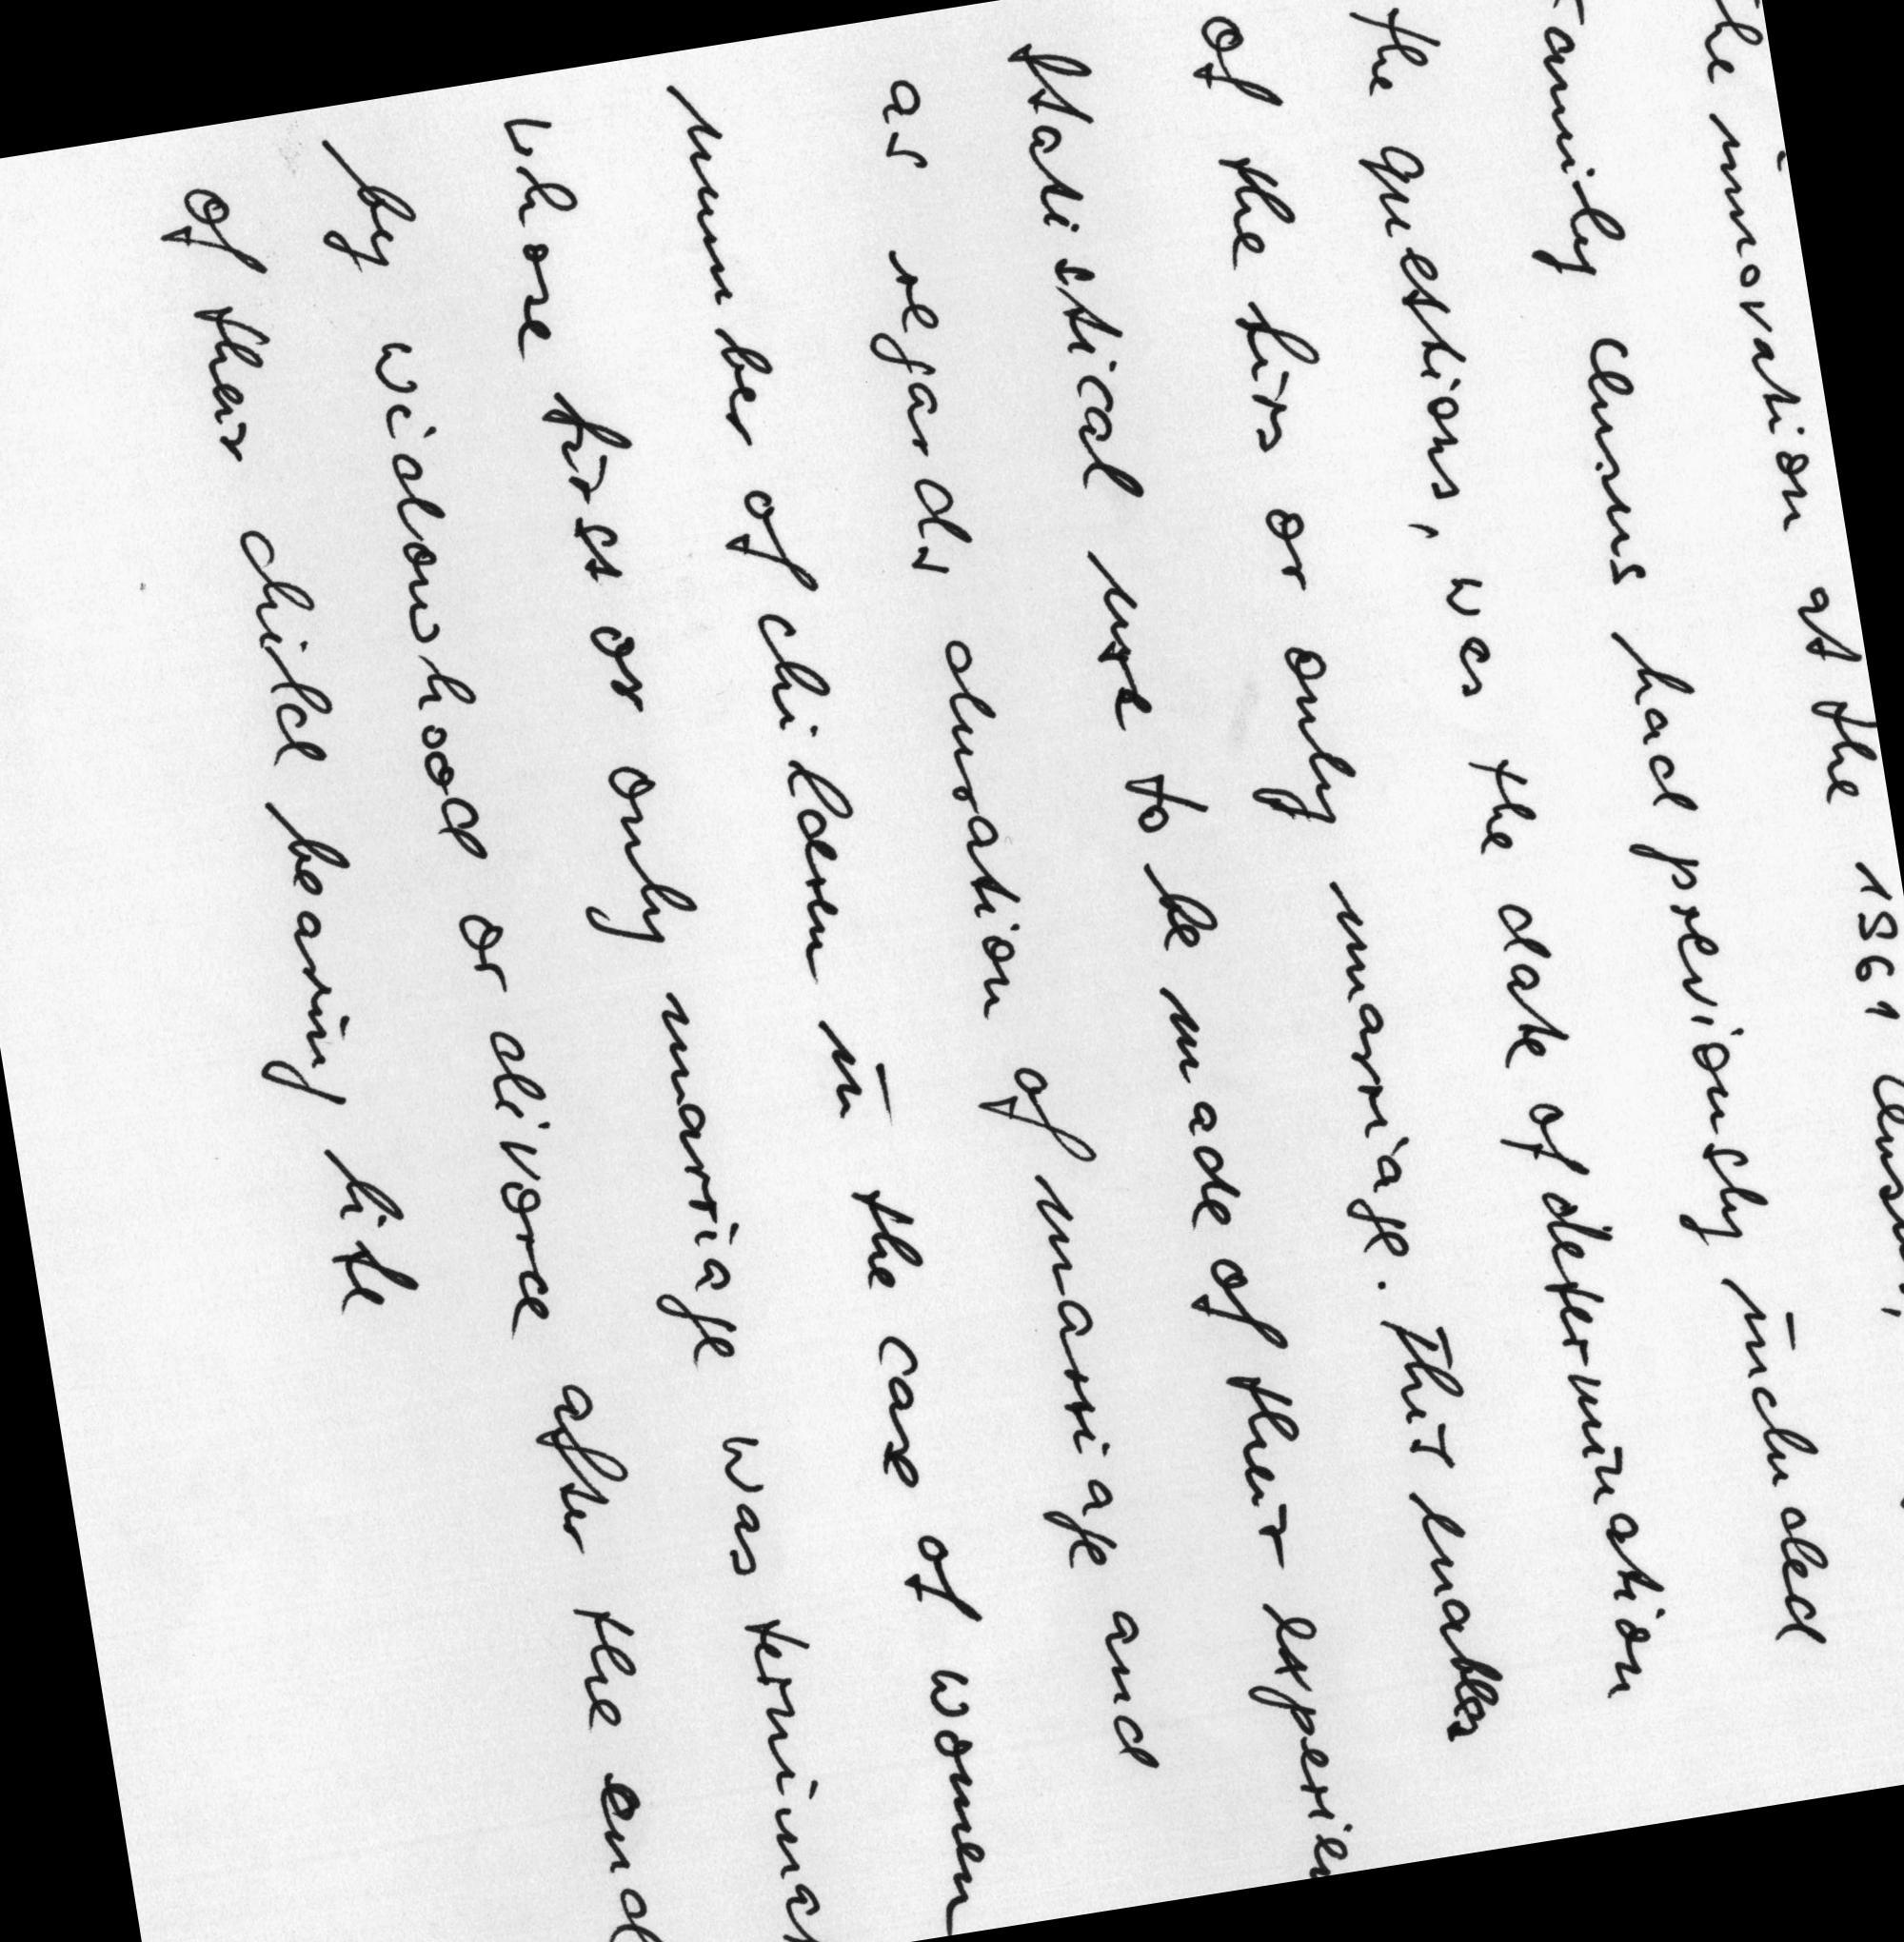 the innovation at the 1961 Census,
family census had previously included
the questions, was the date of determination
of the firs or only marriage. This enables
statistical use to be made of their experien
as regards duration of marriage and
number of children in the case of women
whose first or only marriage was terminat
by widowhood or divorce after the end
of their child bearing life